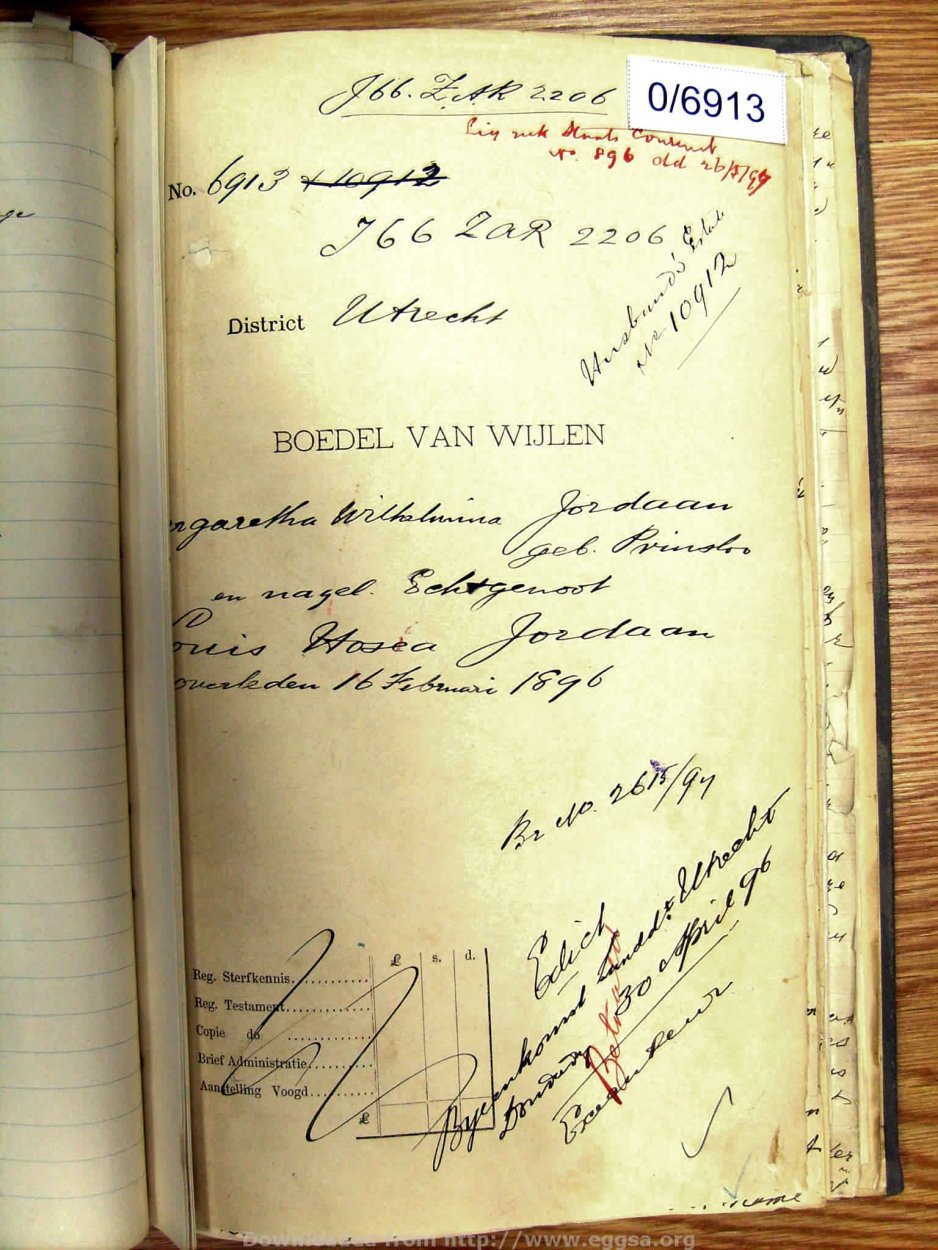 J66. ZAR 2206
0/6913
Staats Courant
No. 896 dd 26/5/97
No. 6913 + 10912
J66 ZAR 2206
Husband's Estate
No 10912
District Utrecht
BOEDEL VAN WIJLEN
rgaretha Wilhelmina Jordaan
geb. Prinsloo
en nagel. Echtgenoot
Louis Hosea Jordaan
overleden 16 Februari 1896
Br No. 2615/97
Edict
Byeenkomst Landd: Utrecht
Donderdag 30 April 96
Executeur
£ s. d.
Reg. Sterfkennis.
Reg. Testament.
Copie do
Brief Administratie
Aanstelling Voogd.
£
name
Downloaded from http://www.eggsa.org